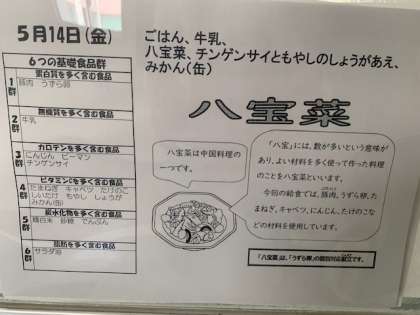 5月14日(金)
ごはん、牛乳、
八宝菜、チンゲンサイともやしのしょうがあえ、
みかん(缶)
6つの基礎食品群
蛋白質を多く含む食品
1群
豚肉 うずら卵
無機質を多く含む食品
2群
牛乳
カロテンを多く含む食品
3群
にんじん ピーマン
チンゲンサイ
ビタミンCを多く含む食品
4群
たまねぎ キャベツ たけのこ
しいたけ もやし しょうが
みかん(缶)
炭水化物を多く含む食品
5群
精白米 砂糖 でんぷん
脂肪を多く含む食品
6群
サラダ油
八宝菜
八宝菜は中国料理の
一つです。
「八宝」には、数が多いという意味が
あり、よい材料を多く使って作った料理
のことを八宝菜といいます。
今回の給食では、豚肉、うずら卵、た
まねぎ、キャベツ、にんじん、たけのこな
どの材料を使用しています。
「八宝菜」は、「うずら卵」の個別対応献立です。